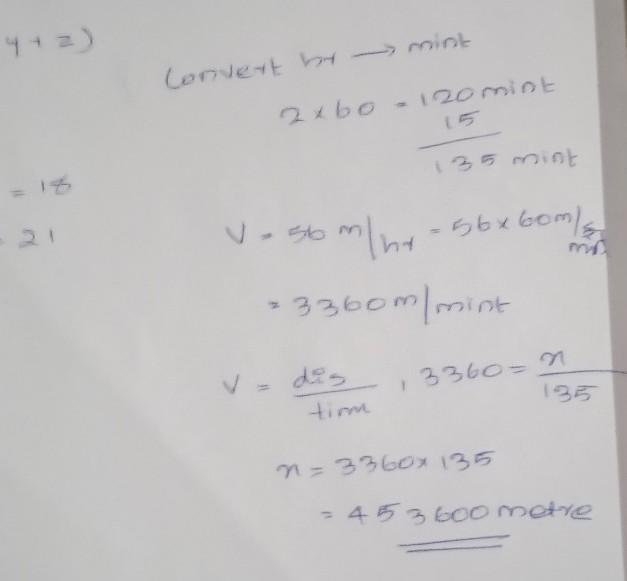 y + z)
Convert hr → mint
2 x 60 = 120 mint
15
135 mint
= 18
21
V = 56 m/hr = 56 x 60 m/min
= 3360 m/mint
V = dis/tim , 3360 = n/135
n = 3360 x 135
= 453600 metre